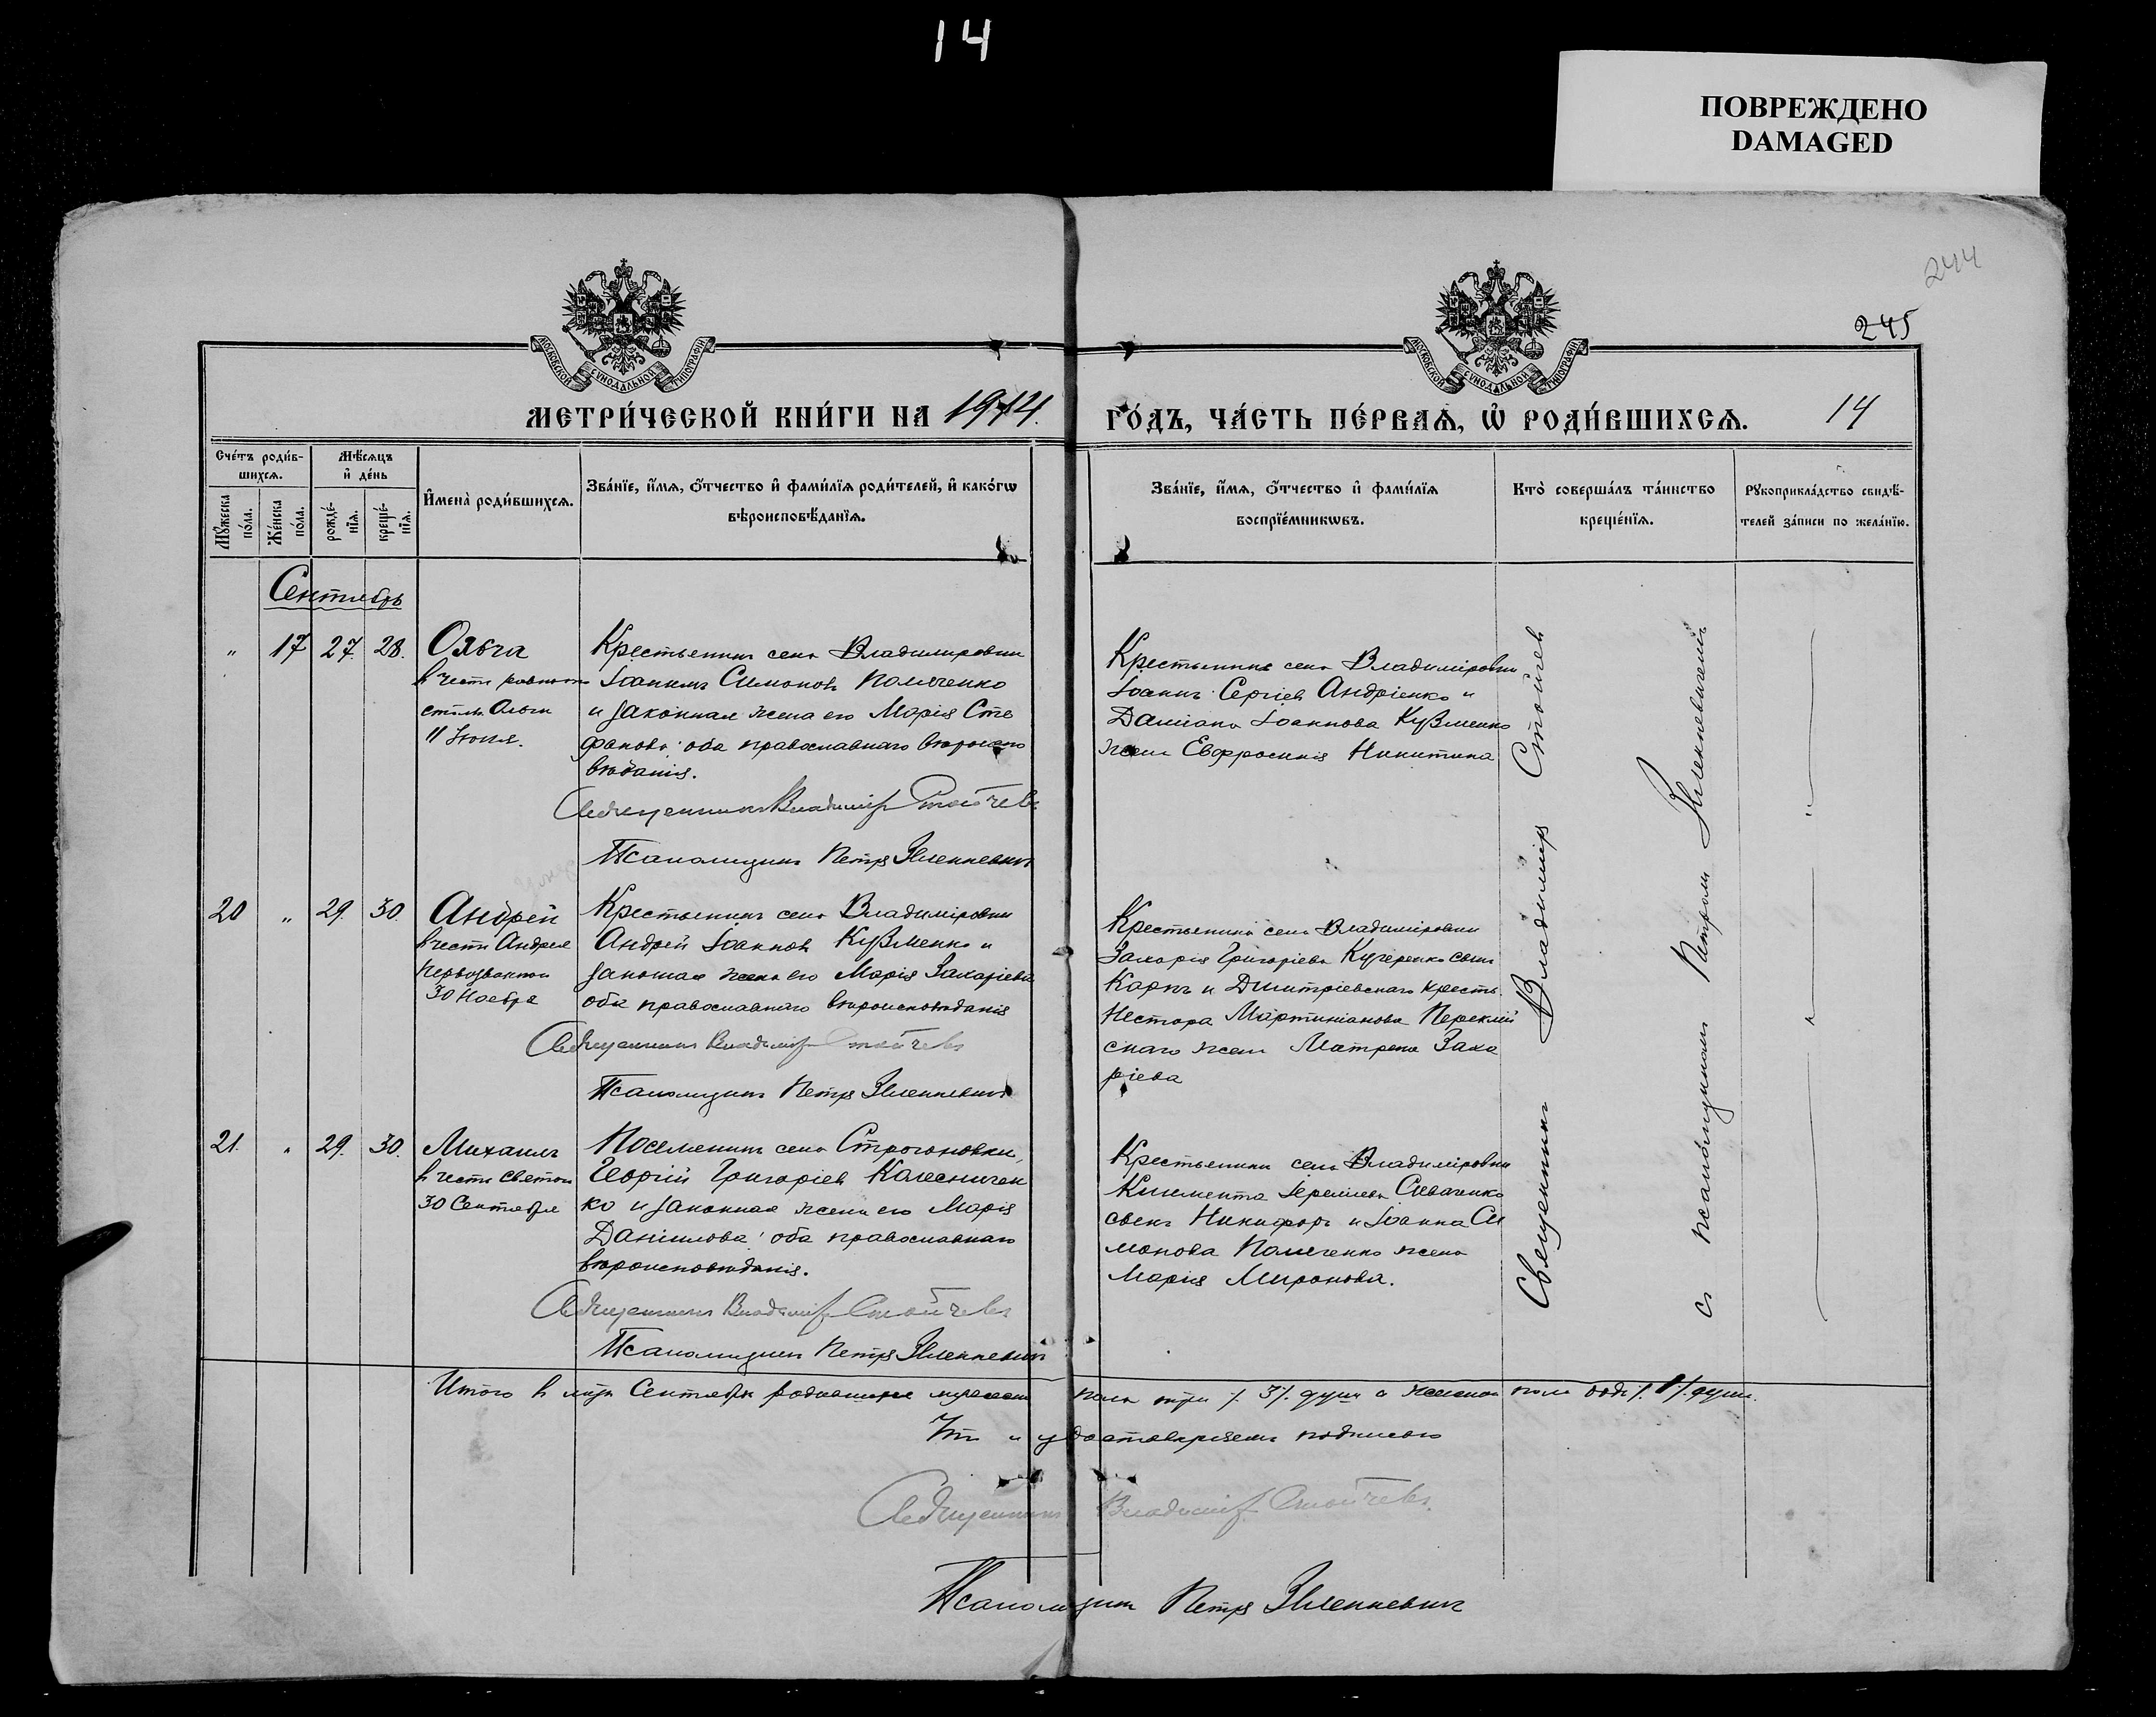 14
ПОВРЕЖДЕНО
DAMAGED
244
245
МОСКОВСКОЙ СѴНОДАЛЬНОЙ ТИПОГРАФІИ
МОСКОВСКОЙ СѴНОДАЛЬНОЙ ТИПОГРАФІИ
МЕТРИ́ЧЕСКОЙ КНИ́ГИ НА 1914.
ГО́ДЪ, ЧА́СТЬ ПЕ́РВАѦ, Ѡ҆ РОДИ́ВШИХСѦ. 14
Сче́тъ роди́в-
шихсѧ.
Мꙋ́жеска
по́ла.
Же́нска
по́ла.
Мѣ́сѧцъ
и҆ де́нь
рожде́-
нїѧ.
креще́-
нїѧ.
И҆мена̀ роди́вшихсѧ.
Зва́нїе, и҆́мѧ, ѻ҆́тчество и҆ фами́лїѧ роди́телей, и҆ како́гѡ
вѣроисповѣ́данїѧ.
Зва́нїе, и҆́мѧ, ѻ҆́тчество и҆ фами́лїѧ
воспрїе́мникѡвъ.
Кто̀ соверша́лъ та́инство
креще́нїѧ.
Рꙋкоприкла́дство свидѣ́-
телей за́писи по жела́нїю.
Сентябрь
" 17 27. 28. Ольга
в честь равноап
стольн. Ольги
11 Июля.
Крестьянинъ села Владиміровки
Іоакимъ Симоновъ Поляченко
и законная жена его Марія Сте
фанова: оба православнаго вѣроиспо
вѣданія.
Священникъ Владиміръ Стойчевъ
Псаломщикъ Петръ Зеленкевичъ
Крестьянинъ села Владиміровки
Іоаннъ Сергіевъ Андріенко и
Даміана Іоаннова Кузменко
жена Евфросинія Никитина
20 " 29. 30. Андрей
в честь Андрея
Первозваннаго
30 Ноября
Крестьянинъ села Владиміровки
Андрей Іоанновъ Кузменко и
законная жена его Марія Захаріева
оба православнаго вѣроисповѣданія
Священникъ Владиміръ Стойчевъ
Псаломщикъ Петръ Зеленкевичъ
Крестьянина села Владиміровки
Захарія Григоріева Кучеренко сынъ
Карпъ и Димитріевскаго крестьян.
Нестора Мартиніанова
скаго жена Матрона Заха
ріева
21. " 29. 30. Михаилъ
в честь святого
30 Сентября
Поселянинъ села Строгоновки,
Георгій Григоріевъ Колесничен
ко и законная жена его Марія
Даніилова: оба православнаго
вѣроисповѣданія.
Священникъ Владиміръ Стойчевъ
Псаломщикъ Петръ Зеленкевичъ
Крестьянина села Владиміровки
Климента Іереміева Сиваченко
сынъ Никифоръ и Іоанна Си
монова Поляченко жена
Марія Миронова.
Священникъ Владиміръ Стойчев
съ псаломщикомъ Петромъ Зеленкевичемъ
Итого в м-цѣ Сентябрѣ родившихся мужескаго пола три /. 3 /. души а женскаго пола одна /. 1 /. душа.
Что и удостовѣряемъ подписью
Священникъ Владиміръ Стойчевъ.
Псаломщикъ Петръ Зеленкевичъ